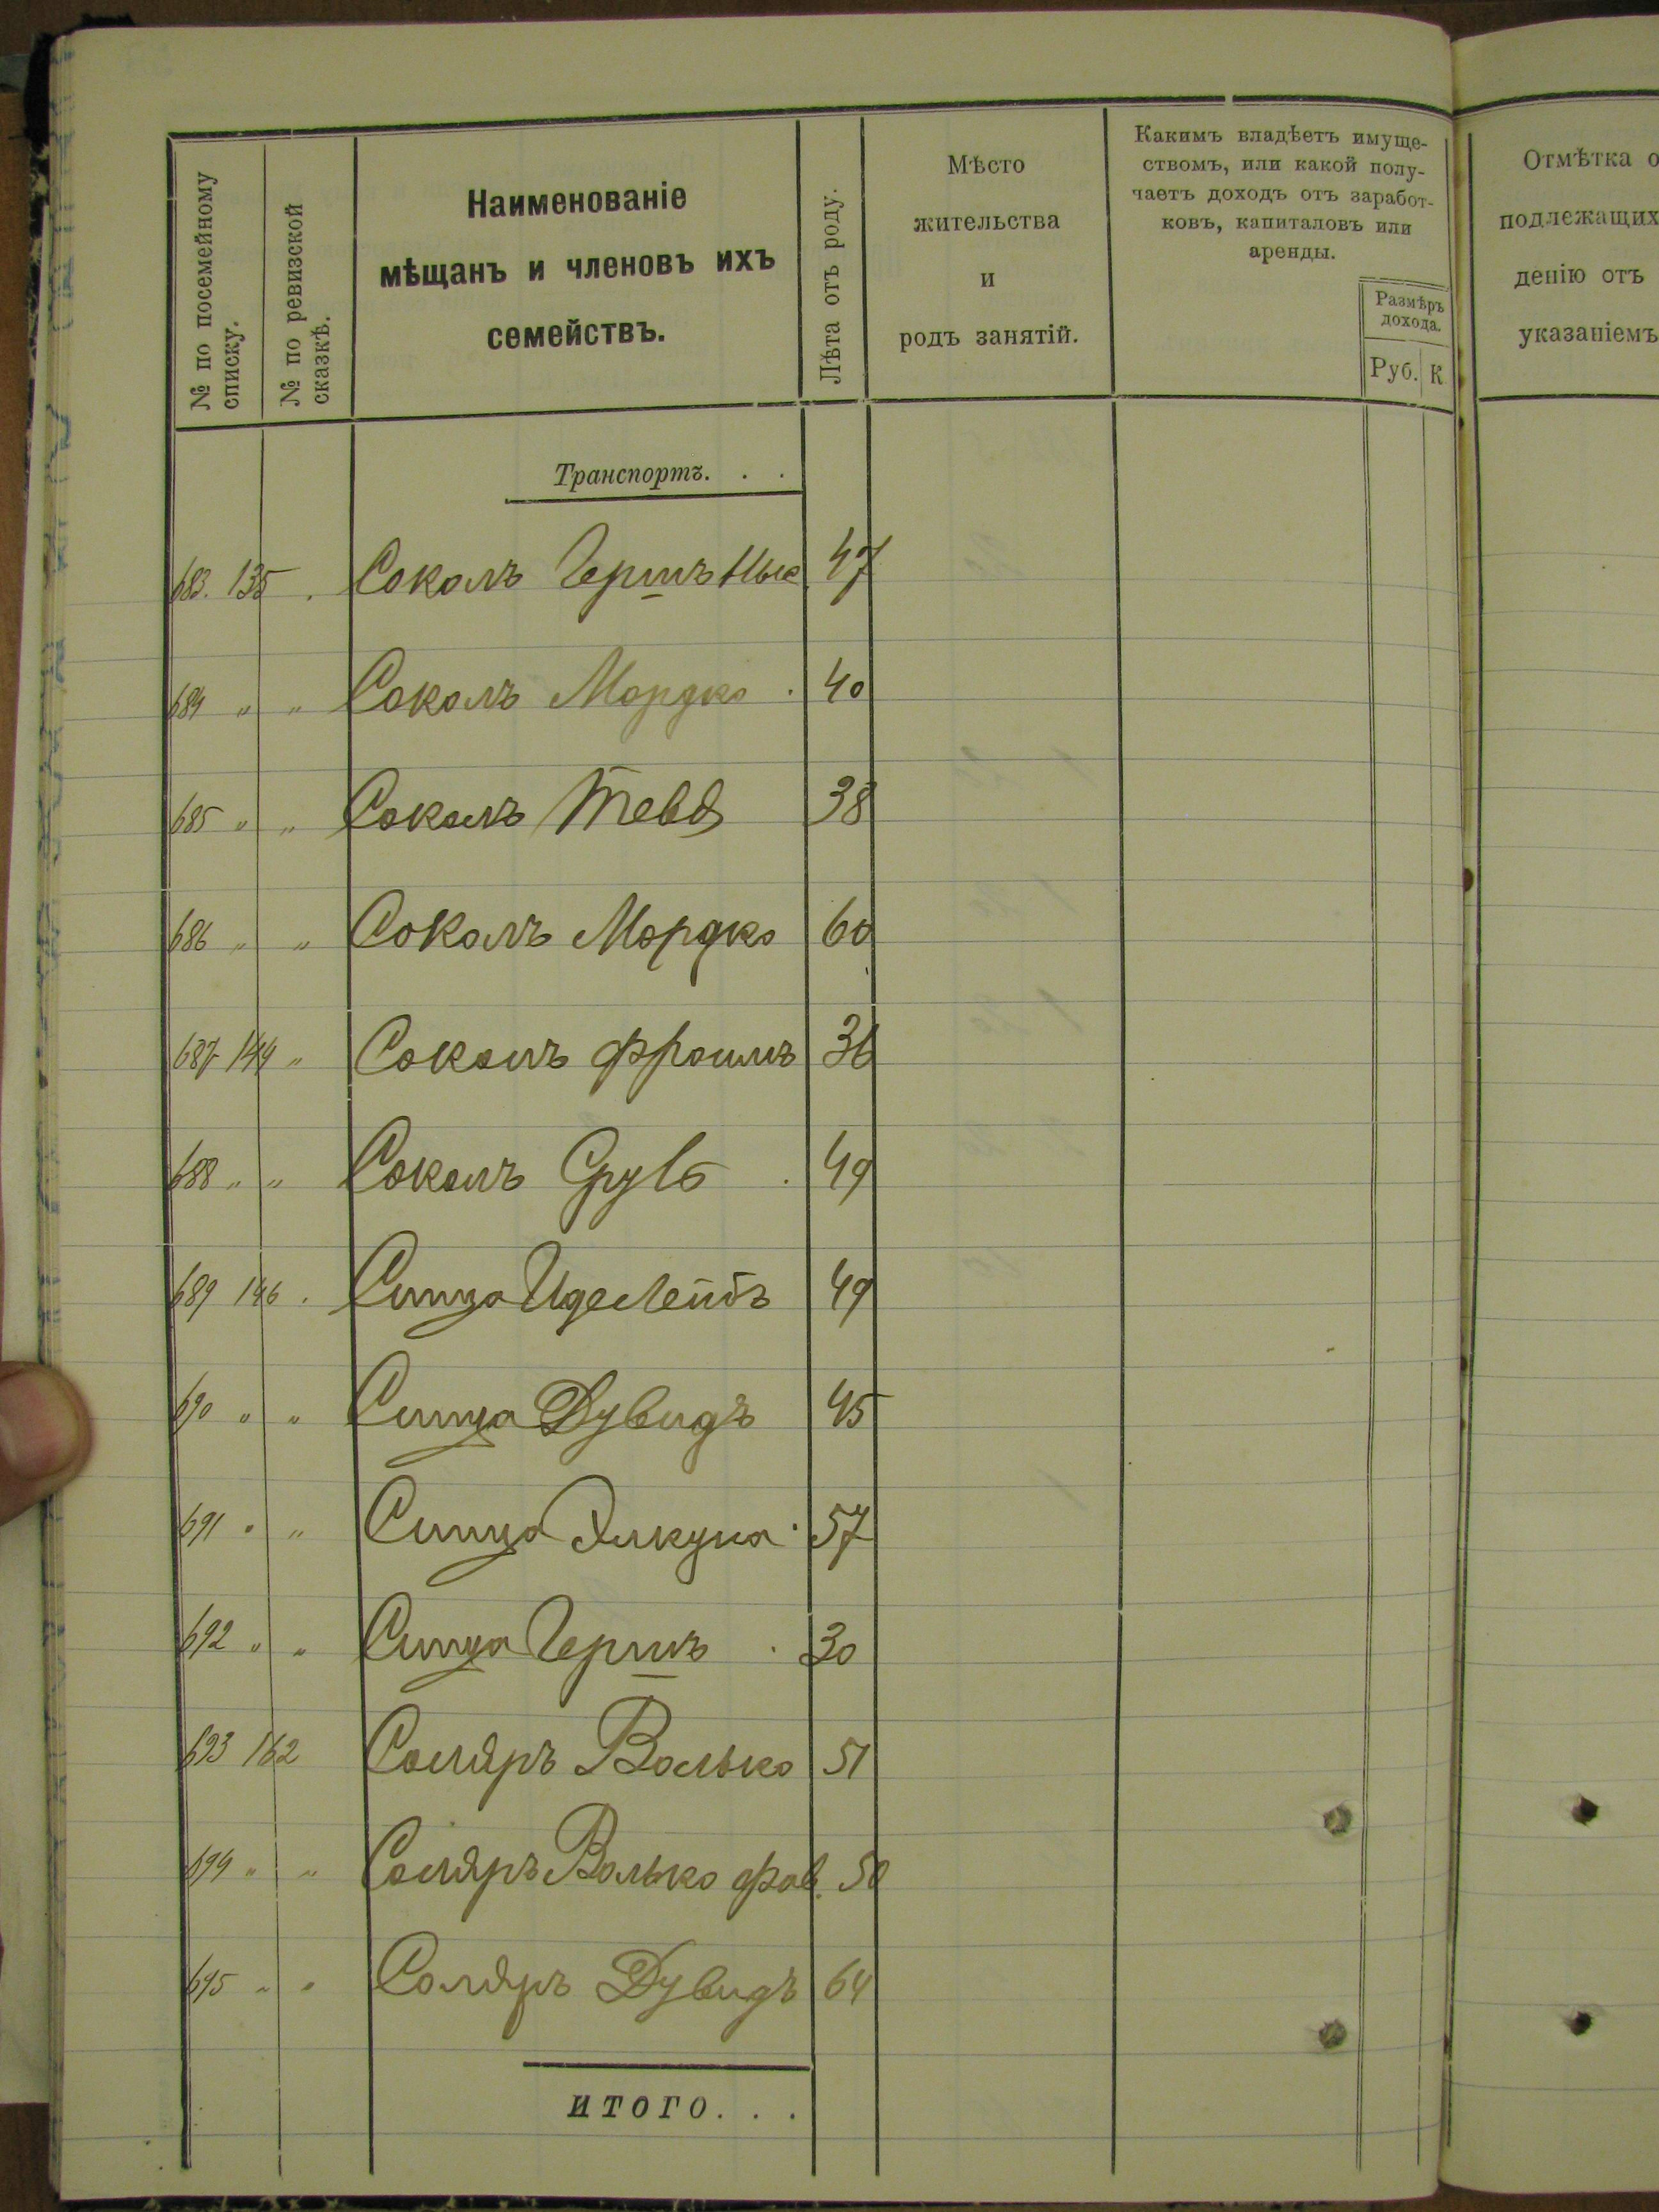 № по посемейному
списку.
№ по ревизской
сказкѣ.
Наименованіе
мѣщанъ и членовъ ихъ
семействъ.
Лѣта отъ роду.
Мѣсто
жительства
и
родъ занятій.
Какимъ владѣетъ имуще-
ствомъ, или какой полу-
чаетъ доходъ отъ заработ-
ковъ, капиталовъ или
аренды.
Размѣръ
дохода.
Руб. К
Отмѣтка о
подлежащих
денію отъ
указаніемъ
Транспортъ. . .
683. 135 . Соколъ Гершъ 47
684 " " Соколъ Мордко . 40
685 " " Соколъ Тевъ 38
686 " " Соколъ Мордко 60
687 144 " Соколъ Фроимъ 36
688 " " Соколъ Сруль . 49
689 146 . Сница Иделейбъ 49
690 " " Сница Дувидъ 45
691 " " Сница Элкуна . 57
692 " " Сница Гершъ . 30
693 162 Соляръ Волько 51
694 " " Соляръ Волько Фав. 50
695 " " Соляръ Дувидъ 64
ИТОГО. . .